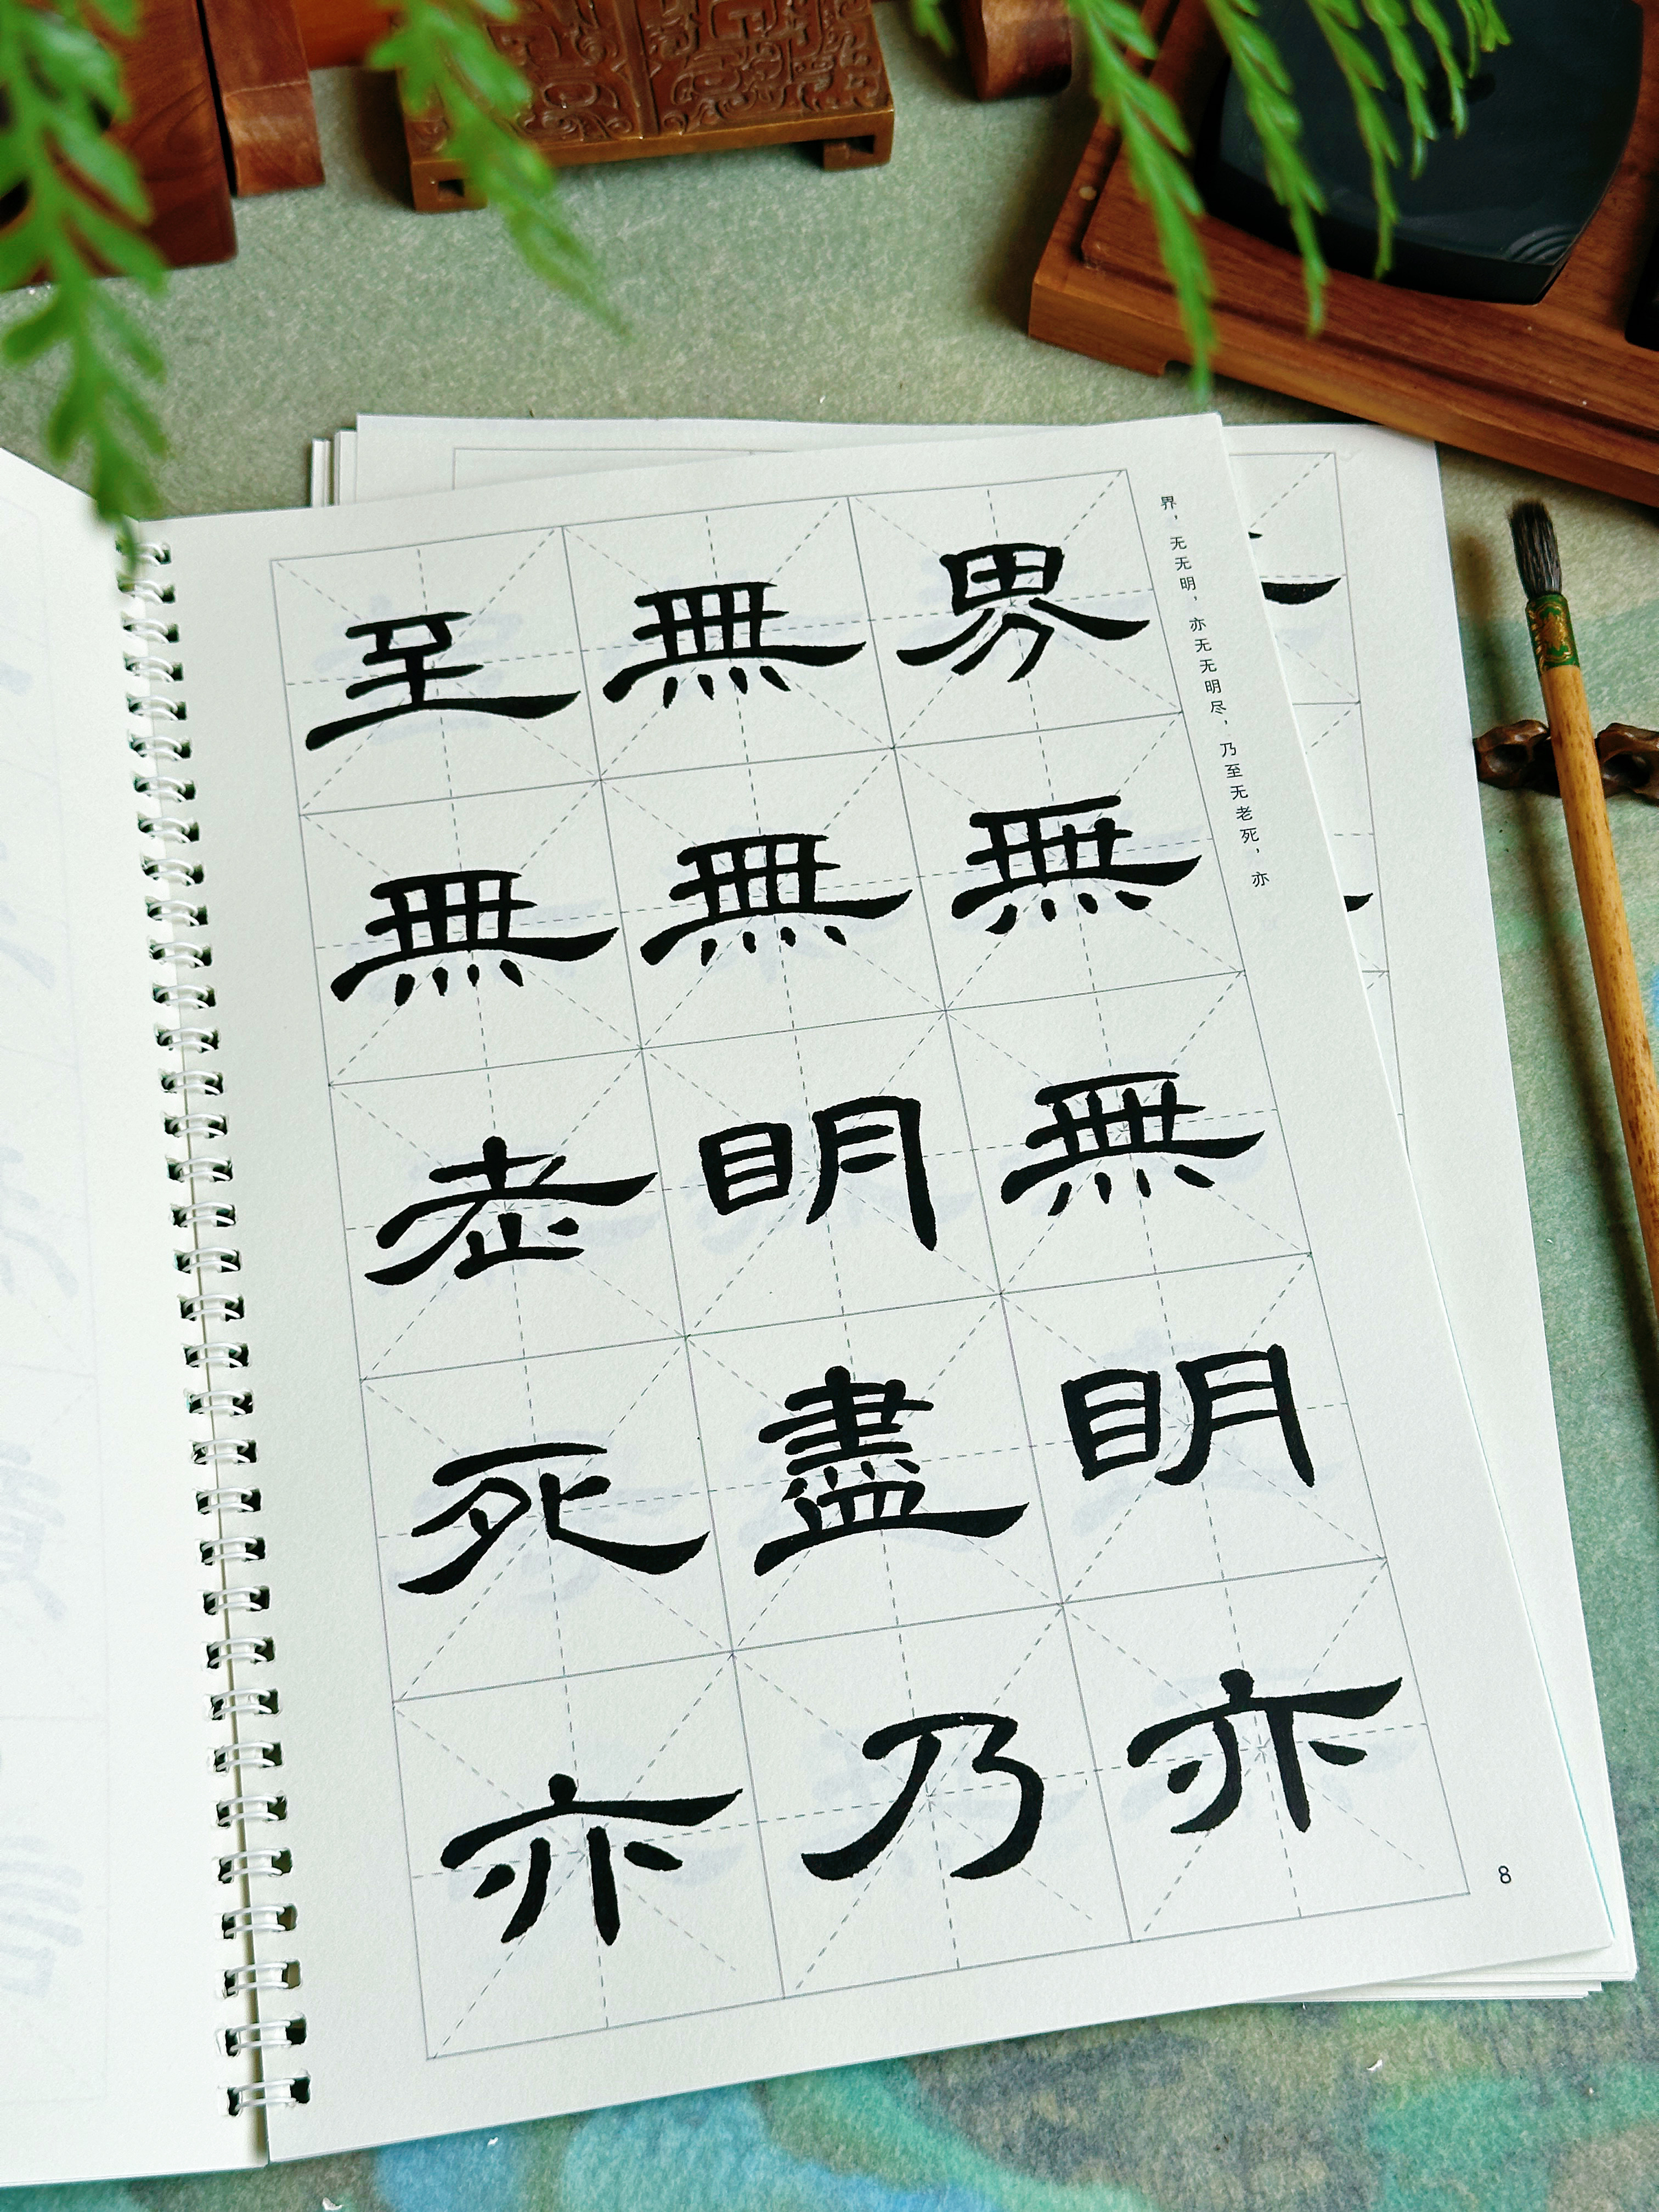 界，无无明，亦无无明尽，乃至无老死，亦
界無無明亦
無無明盡乃
至無老死亦
8